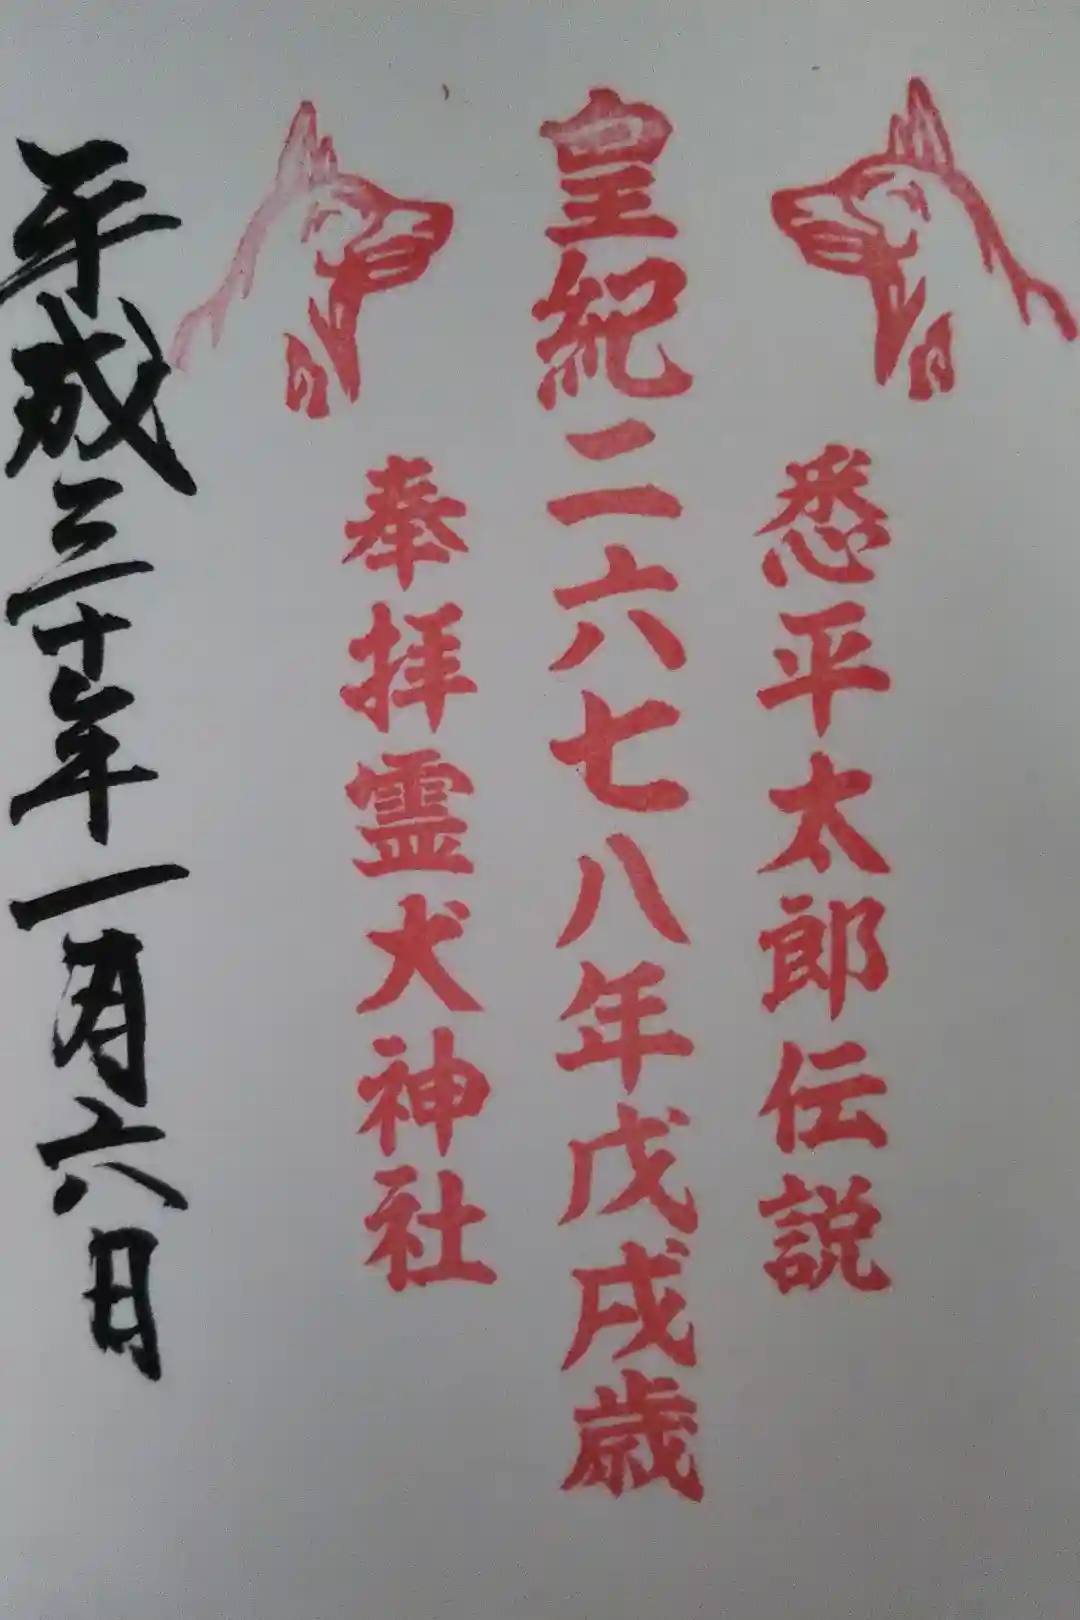 悉平太郎伝説
皇紀二六七八年戊戌歳
奉拝霊犬神社
平成三十年一月六日